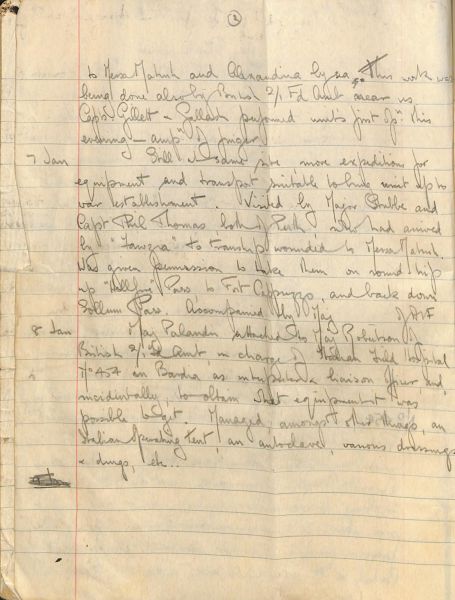 2
to Mersa Matruh and Alexandria by sea. This work was
being done also by British 2/1 Fd Amb near us
Capts Gillet & Gallash performed unit's first op. this
evening — ampn of finger
7 Jan Still in same site more expeditions for
equipment and transport suitable to bring unit up to
war establishment. Visited by Major and
Capt Phil Thomas both of Perth who had arrived
by "  " to tranship wounded to Mersa Matruh.
Was given permission to take them on round trip
up " " Pass to Fort Cappuzzo, and back down
Sollum Pass. Accompanied by Maj of AIF
8 Jan Maj Palandri attached to Maj Robertson of
British 2/1 Fd Amb in charge of Italian Field Hospital
No 454 in Bardia as interpreter & liaison officer and,
incidentally, to obtain what equipment it was
possible to get. Managed, amongst other things, an
Italian Operating Tent, an autoclave, various dressings
& drugs, etc..